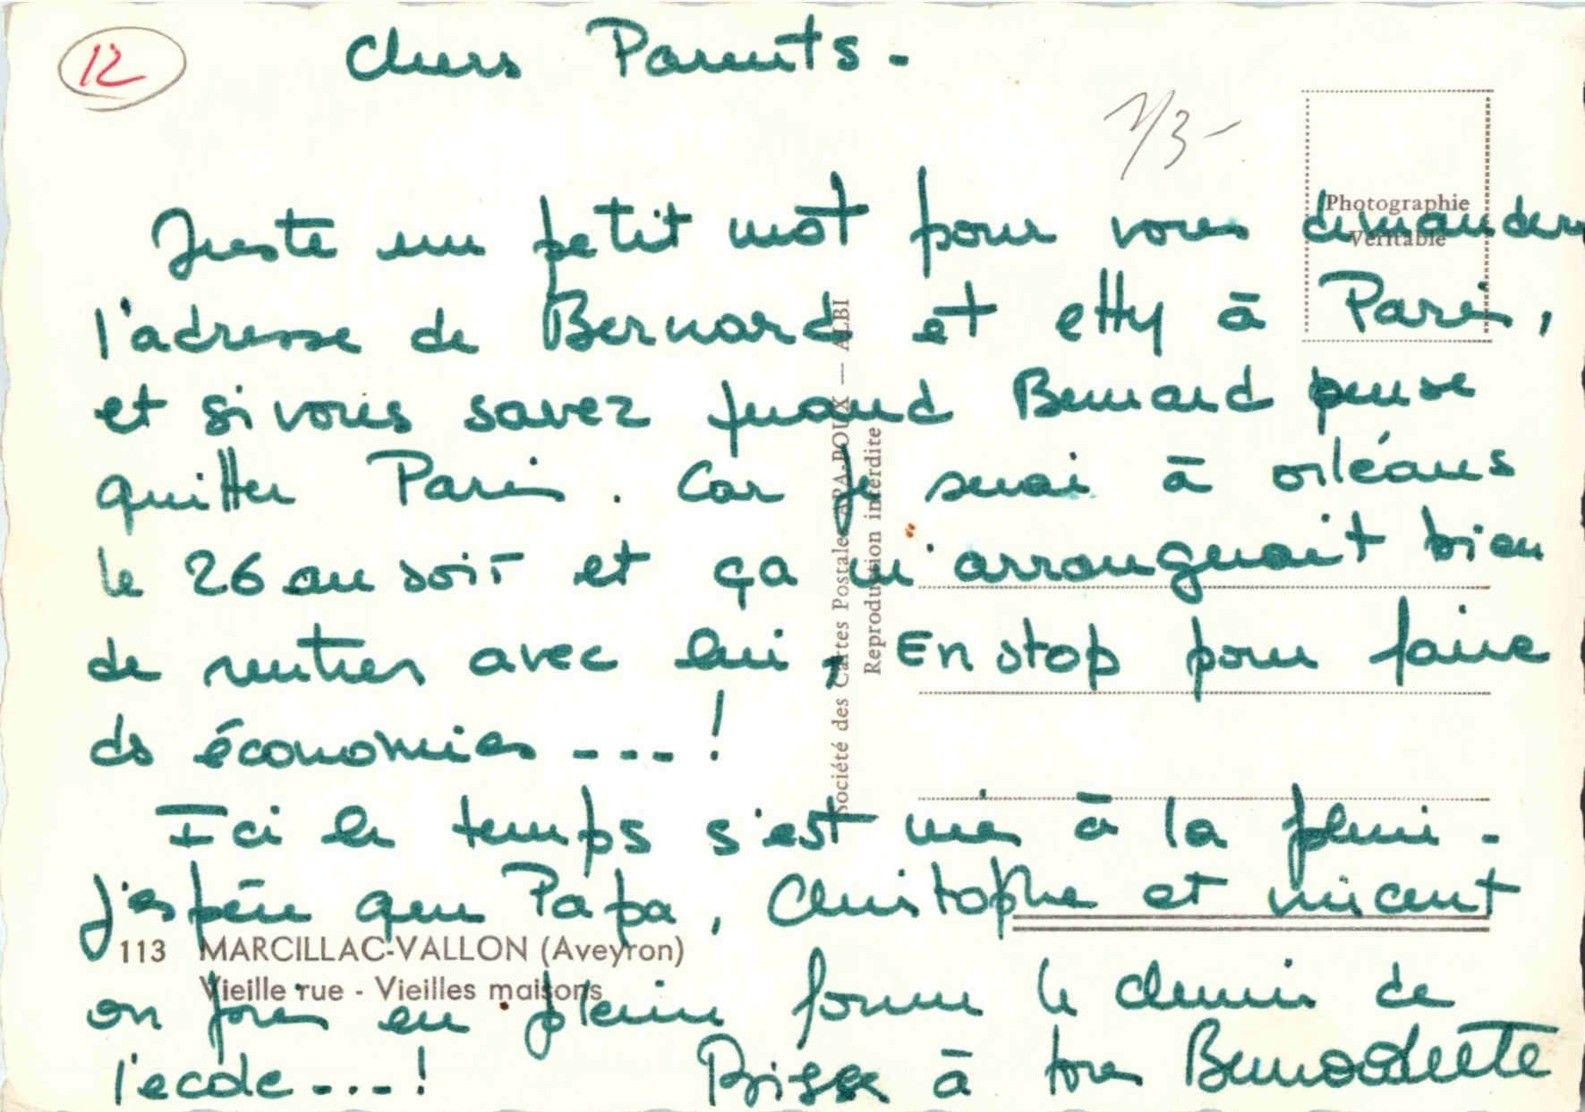 12
Chers Parents -
Juste un petit mot pour vous demander
l'adresse de Bernard et etty à Paris,
et si vous savez quand Bernard pense
quitter Paris. Car je serai à orléans
le 26 au soir et ça m'arrangerait bien
de rentrer avec lui, En stop pour faire
ds économies ---!
Ici le temps s'est mis à la pluie -
J'espère que Papa, Christophe et vincent
on en pleine forme le chemin de
l'ecole ---!
Bises à tous Bernadette
113 MARCILLAC-VALLON (Aveyron)
Vieille rue - Vieilles maisons
Société des Cartes Postales APA-POUX — ALBI
Reproduction interdite
Photographie
Véritable